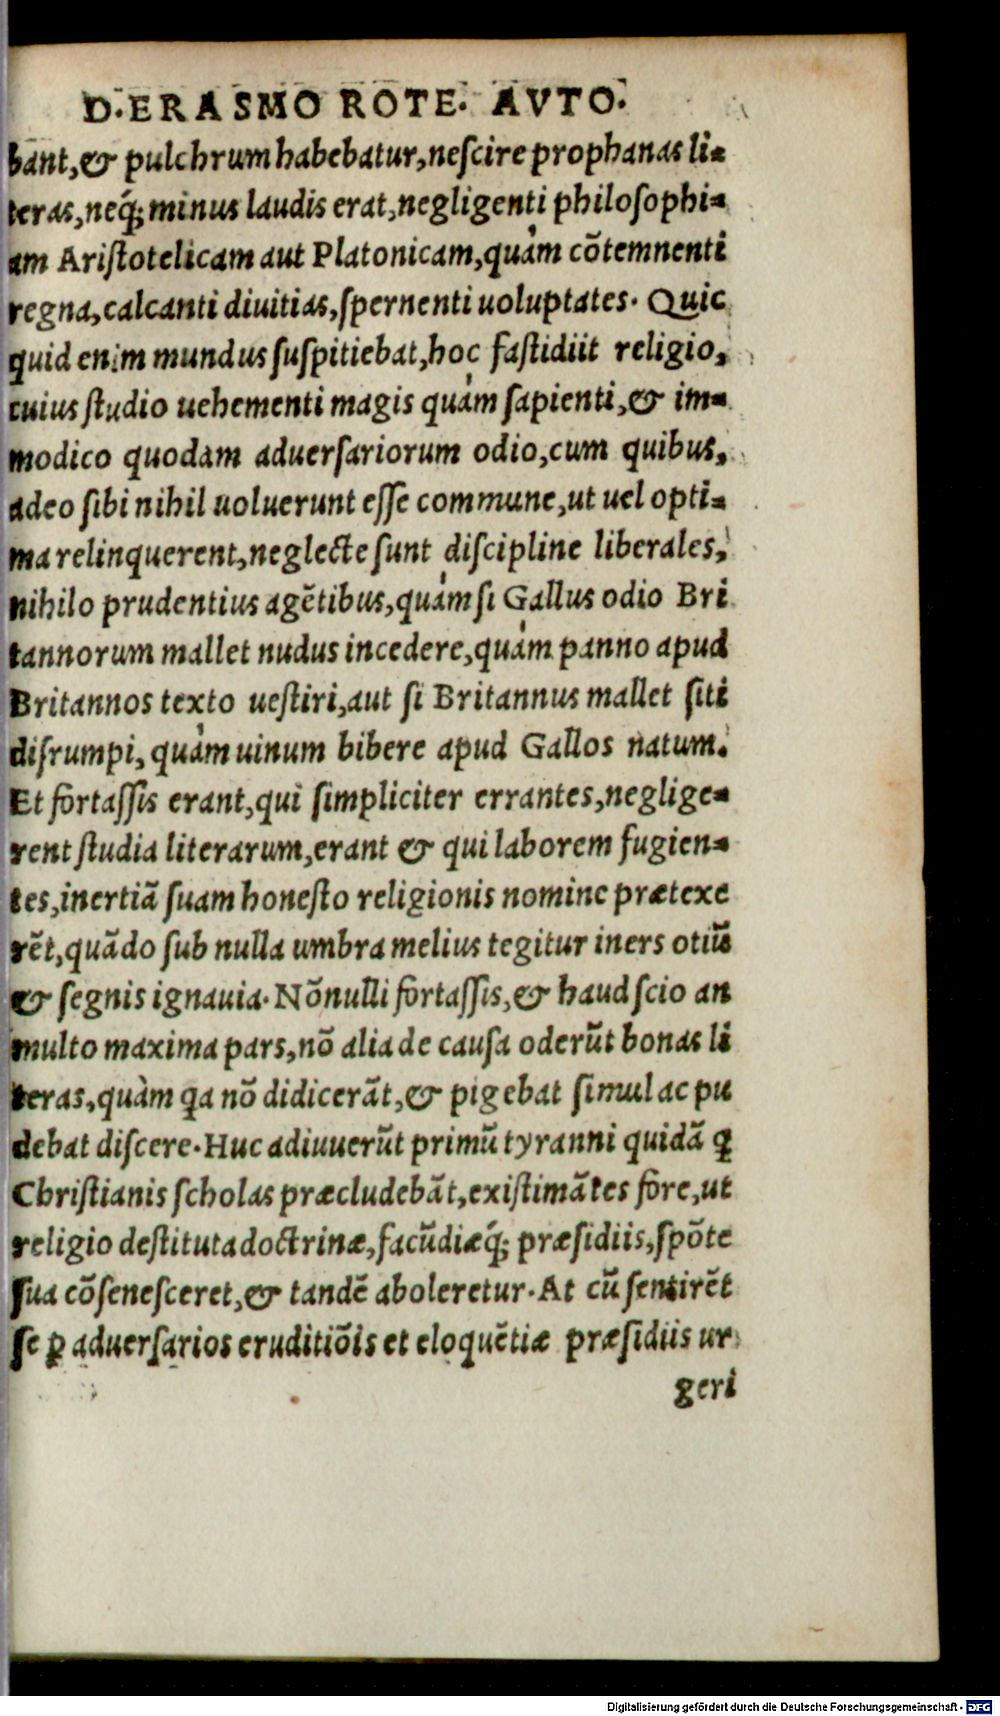 D. ERASMO ROTE. AVTO.
bant,& pulchrum habebatur,nescire prophanas li-
teras,neq́; minus laudis erat,negligenti philosophi-
am Aristotelicam aut Platonicam,quàm cõtemnenti
regna,calcanti diuitias,spernenti uoluptates. Quic
quid enim mundus suspitiebat,hoc fastidiit religio,
cuius studio uehementi magis quàm sapienti,& im-
modico quodam aduersariorum odio,cum quibus,
adeo sibi nihil uoluerunt esse commune,ut uel opti-
ma relinquerent,neglecte sunt discipline liberales,
nihilo prudentius agẽtibus,quàm si Gallus odio Bri
tannorum mallet nudus incedere,quàm panno apud
Britannos texto uestiri,aut si Britannus mallet siti
disrumpi, quàm uinum bibere apud Gallos natum.
Et fortassis erant,qui simpliciter errantes,neglige-
rent studia literarum,erant & qui laborem fugien-
tes,inertiã suam honesto religionis nomine prætexe
rẽt,quãdo sub nulla umbra melius tegitur iners otiũ
& segnis ignauia. Nõnulli fortassis,& haud scio an
multo maxima pars,nõ alia de causa oderũt bonas li
teras,quàm qa nõ didicerãt,& pigebat simul ac pu
debat discere. Huc adiuuerũt primũ tyranni quidã ꝗ
Christianis scholas præcludebãt,existimãtes fore,ut
religio destituta doctrinæ,facũdiæq́; præsidiis,spõte
sua cõsenesceret,& tandẽ aboleretur. At cũ sentirẽt
se ꝑ aduersarios eruditiõis et eloquẽtiæ præsidiis ur
geri
Digitalisierung gefördert durch die Deutsche Forschungsgemeinschaft - DFG